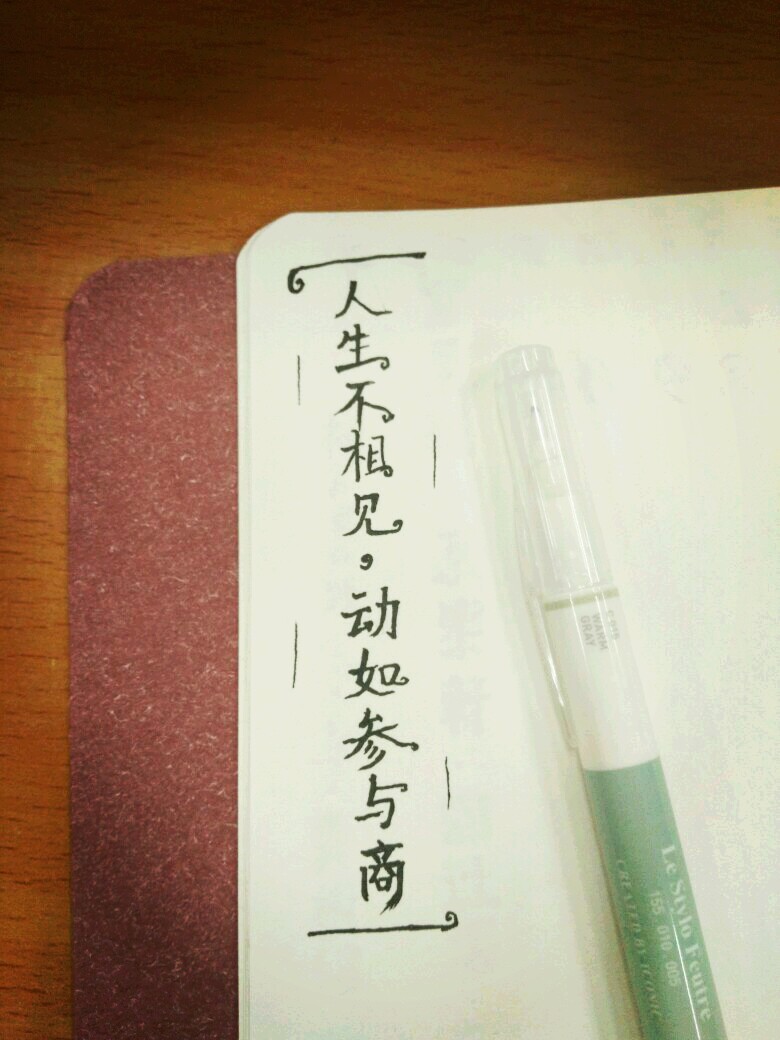 人生不相见，动如参与商
WARM
GRAY
Le Stylo Feutre
155 . 010 . 005
CREATED BY ICONIC